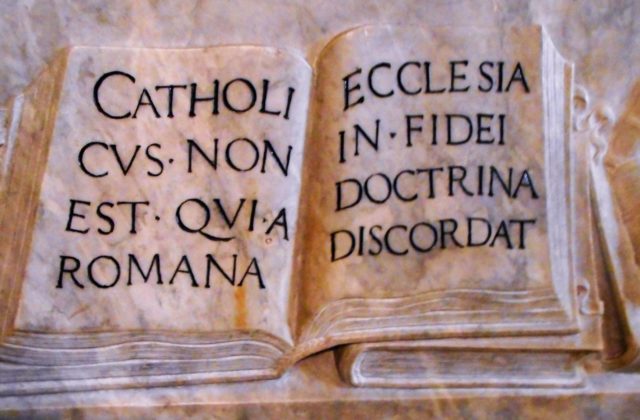 CATHOLI
CVS·NON
EST·QVI·A
ROMANA
ECCLESIA
IN·FIDEI
DOCTRINA
DISCORDAT